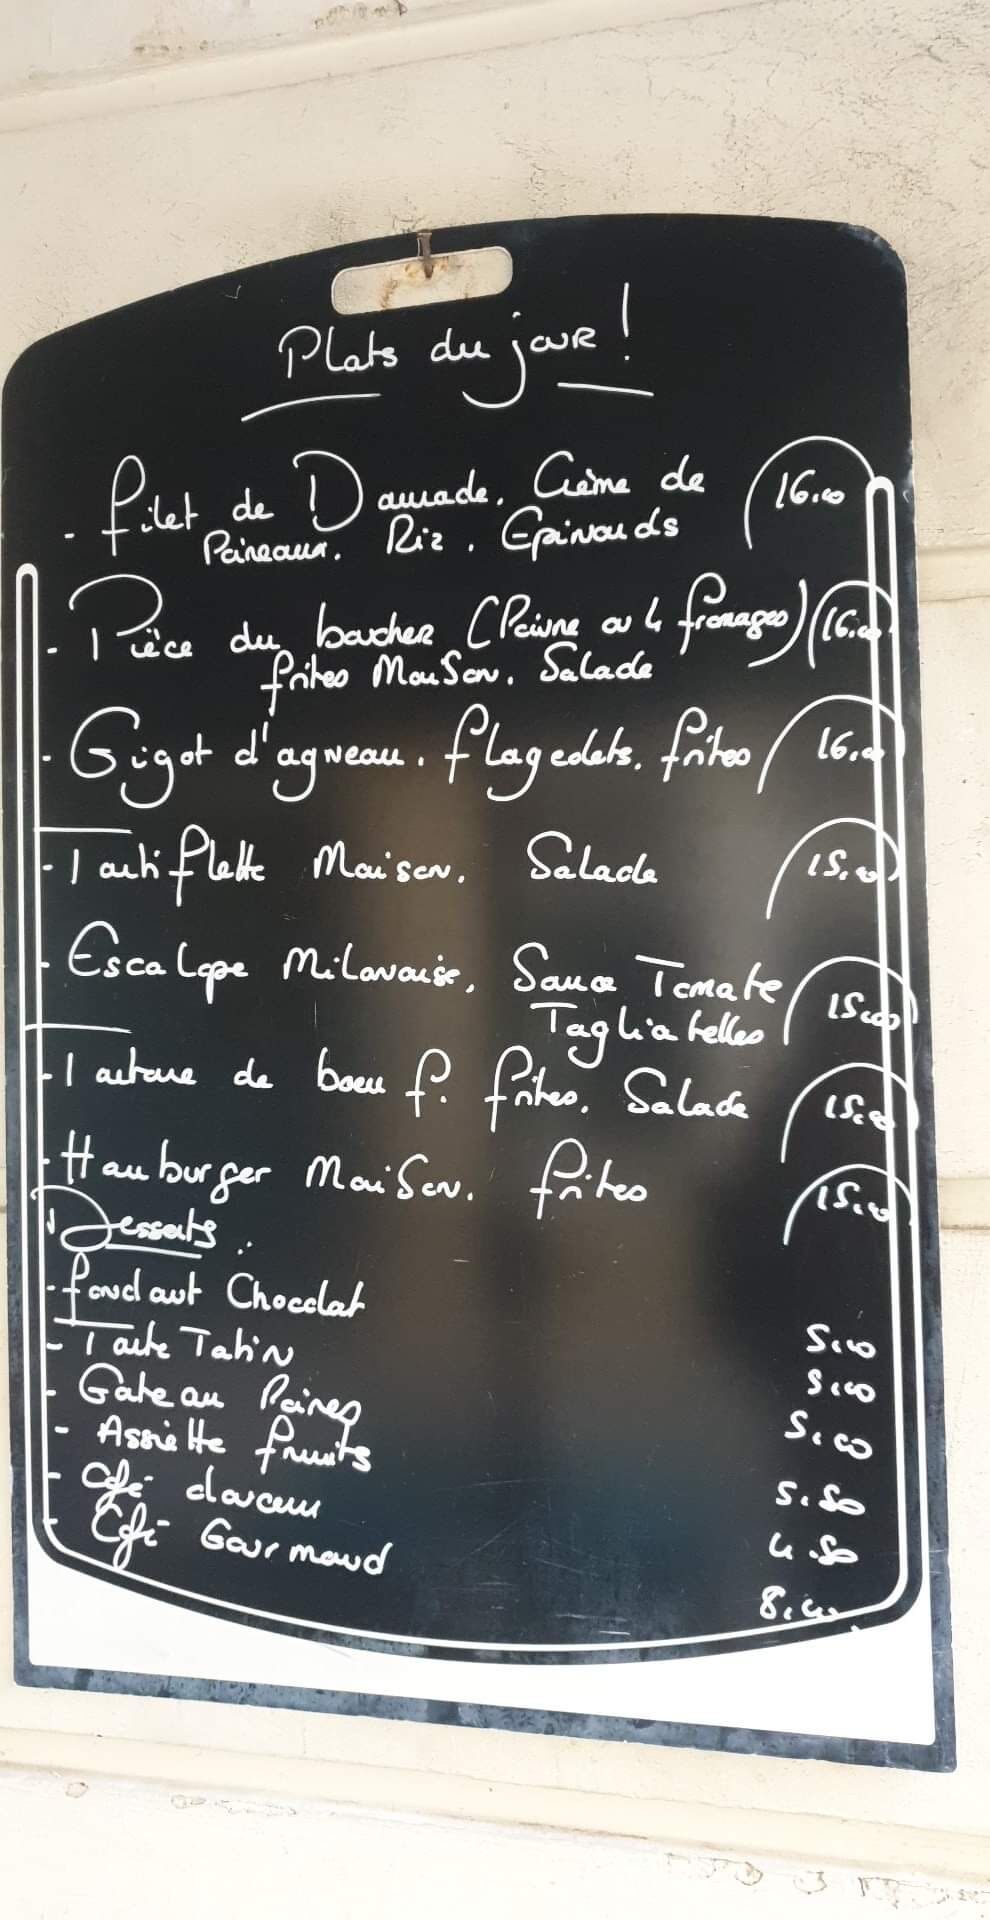 Plats du jour !
- Filet de Daurade. Crème de 16.00
Poireaux. Riz. Epinards
- Pièce du boucher (Poivre ou 4 fromages) 16.00
frites MaiSon. Salade
- Gigot d'agneau. flageolets. frites 16.00
- Tartiflette Maison. Salade 15.00
- Escalope Milanaise. Sauce Tomate 15.00
Tagliatelles
- Tartare de boeuf. frites. Salade 15.00
- Hamburger MaiSon. frites 15.00
Desserts :
- fondant Chocolat 5.00
- Tarte Tatin 5.00
- Gateau Poires 5.00
- Assiette fruits 5.50
- Café douceur 4.50
- Café Gourmand